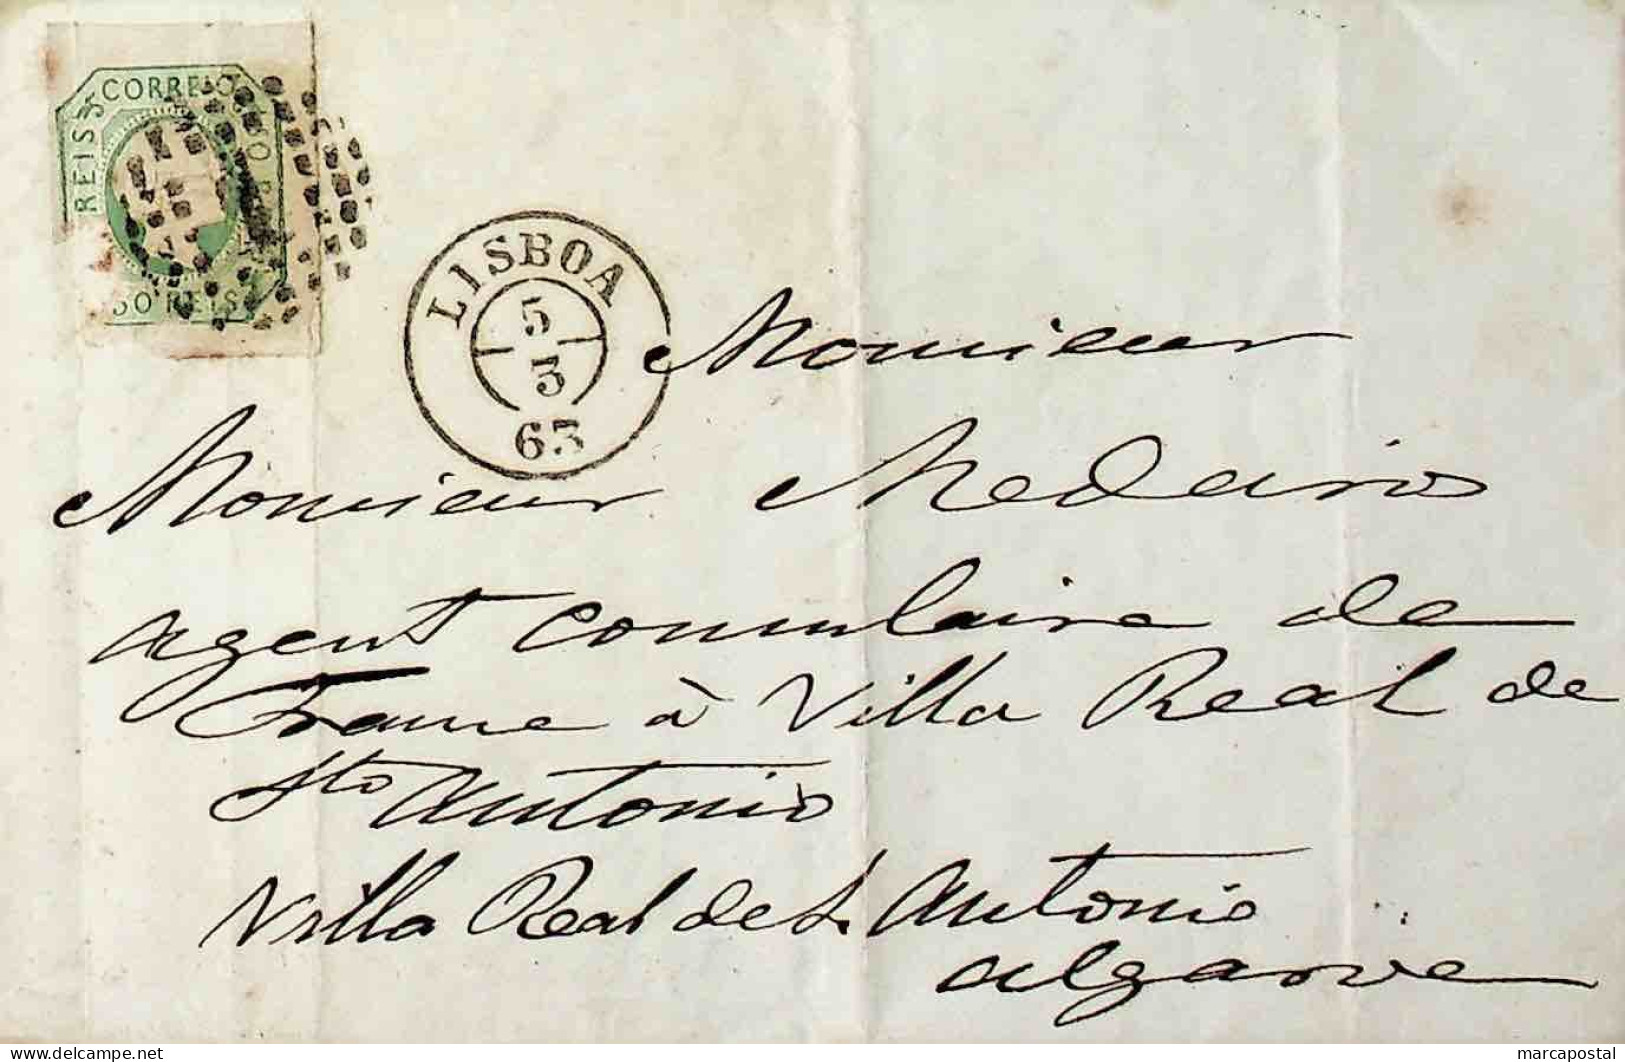 CORREIO
REIS
50 REIS
LISBOA
5
3
63
Monsieur
Monsieur Medeiros
agent consulaire de
France à Villa Real de
Sto Antonio
Villa Real de S. Antonio
Algarve
delcampe.net
marcapostal